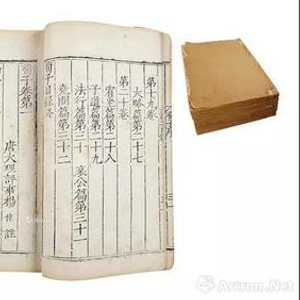 第十九卷
大略篇第二十七
第二十卷
宥坐篇第二十八
子道篇第二十九
法行篇第三十 哀公篇第三十一
堯問篇第三十二
荀子目錄卷
荀子卷第一
唐大理評事楊倞註
Artron.Net